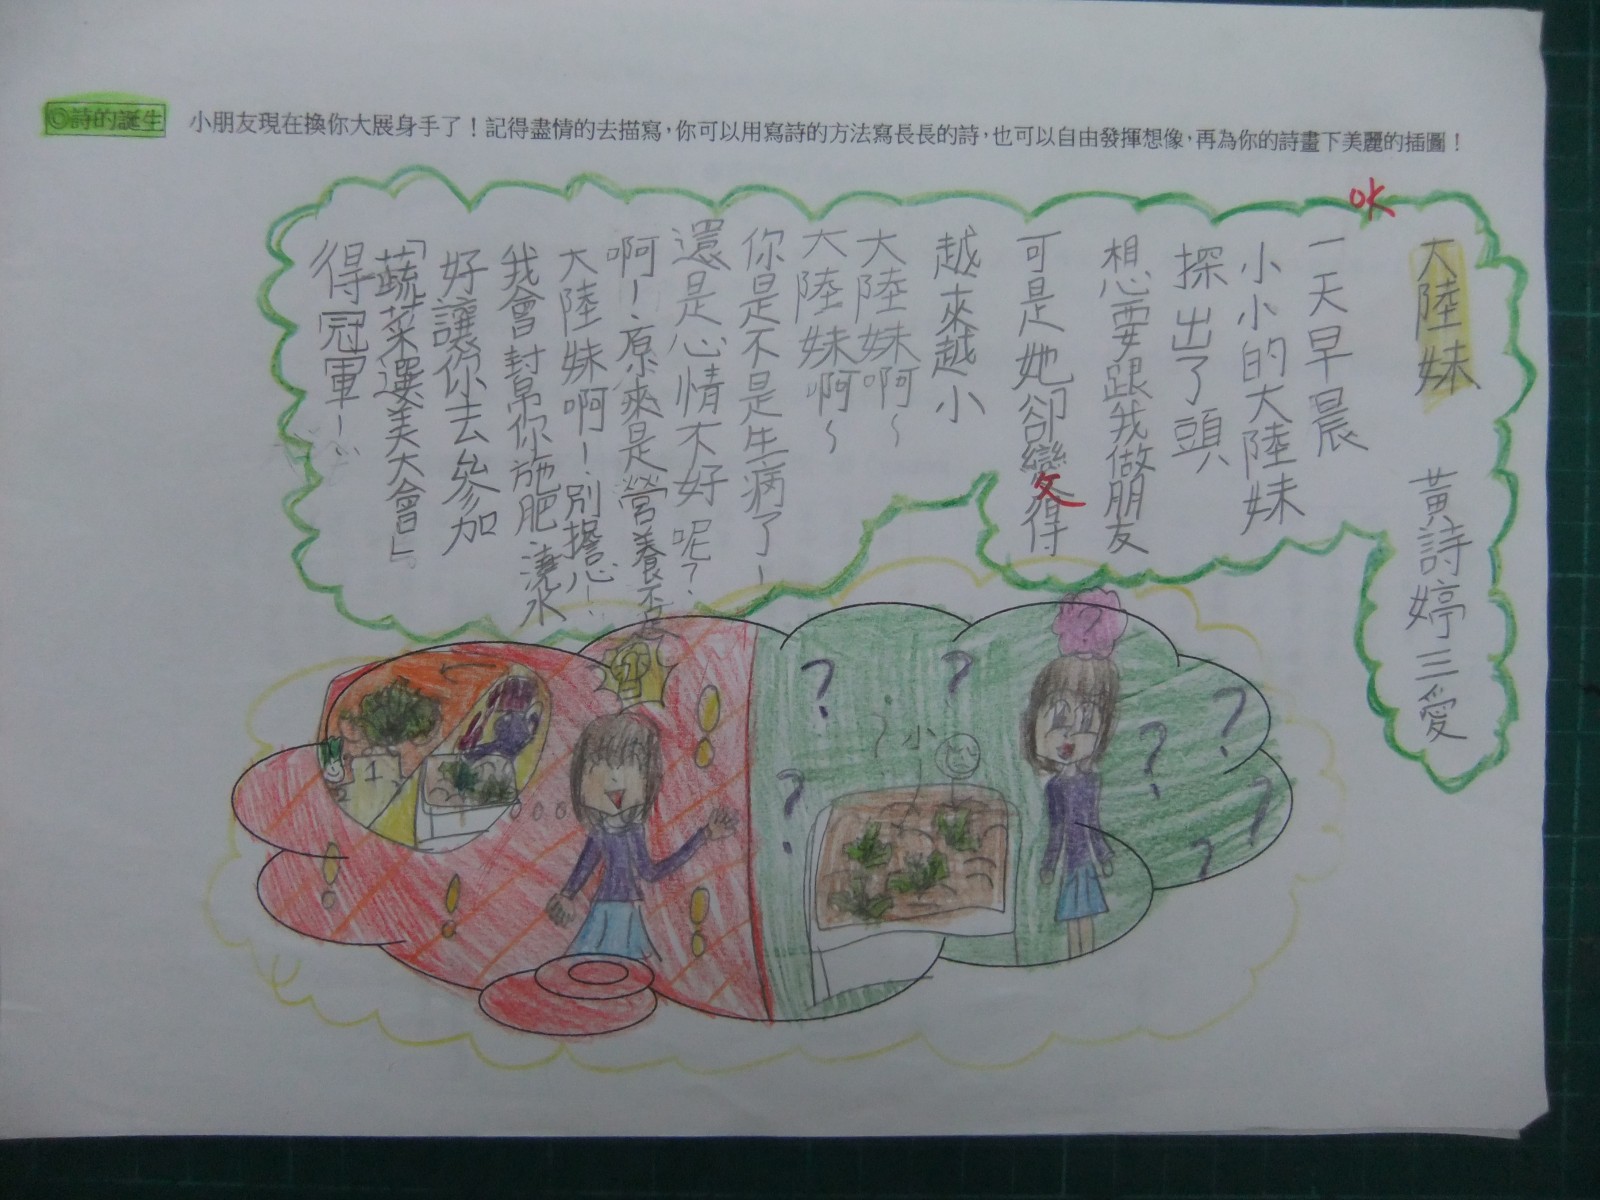 ◎詩的誕生
小朋友現在換你大展身手了！記得盡情的去描寫，你可以用寫詩的方法寫長長的詩，也可以自由發揮想像，再為你的詩畫下美麗的插圖！
OK
大陸妹 黃詩婷三愛
一天早晨
小小的大陸妹
探出了頭
想要跟我做朋友
可是她卻變得
越來越小
大陸妹啊~
大陸妹啊~
你是不是生病了！
還是心情不好呢？
啊！原來是營養不足
大陸妹啊！別擔心！
我會幫你施肥、澆水
好讓你去參加
「蔬菜選美大會」。
得冠軍！
小
1